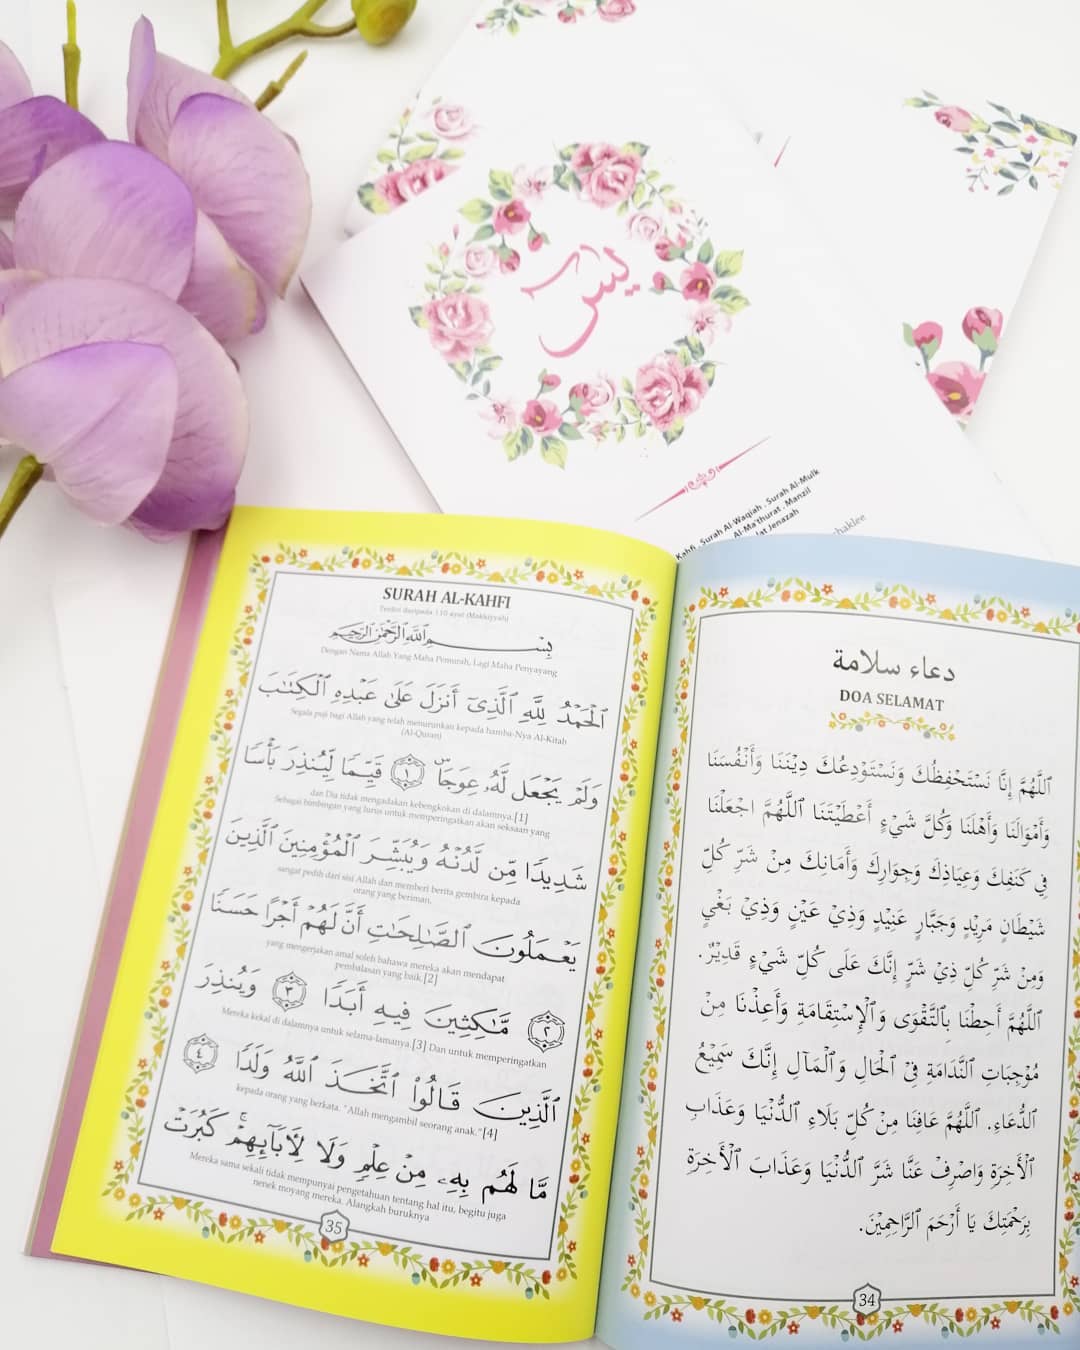 يس
Kahfi . Surah Al-Waqiah . Surah Al-Mulk
Al-Ma'thurat . Manzil
Jenazah
دعاء سلامة
DOA SELAMAT
اَللَّهُمَّ إِنَّا نَسْتَحْفِظُكَ وَنَسْتَوْدِعُكَ دِيْنَنَا وَأَنْفُسَنَا
وَأَمْوَالَنَا وَأَهْلَنَا وَكُلَّ شَيْءٍ أَعْطَيْتَنَا اَللَّهُمَّ اجْعَلْنَا
فِي كَنَفِكَ وَعِيَاذِكَ وَجِوَارِكَ وَأَمَانِكَ مِنْ شَرِّ كُلِّ
شَيْطَانٍ مَرِيْدٍ وَجَبَّارٍ عَنِيْدٍ وَذِيْ عَيْنٍ وَذِيْ بَغْيٍ
وَمِنْ شَرِّ كُلِّ ذِيْ شَرٍّ إِنَّكَ عَلَى كُلِّ شَيْءٍ قَدِيْرٌ.
اَللَّهُمَّ أَحِطْنَا بِالتَّقْوَى وَالْإِسْتِقَامَةِ وَأَعِذْنَا مِنْ
مُوْجِبَاتِ النَّدَامَةِ فِى الْحَالِ وَالْمَآلِ إِنَّكَ سَمِيْعُ
الدُّعَاءِ. اَللَّهُمَّ عَافِنَا مِنْ كُلِّ بَلَاءِ الدُّنْيَا وَعَذَابِ
الْأَخِرَةِ وَاصْرِفْ عَنَّا شَرَّ الدُّنْيَا وَعَذَابَ الْأَخِرَةِ
بِرَحْمَتِكَ يَا أَرْحَمَ الرَّاحِمِيْنَ.
34
SURAH AL-KAHFI
Terdiri daripada 110 ayat (Makkiyyah)
بِسْمِ اللَّهِ الرَّحْمَٰنِ الرَّحِيمِ
Dengan Nama Allah Yang Maha Pemurah, Lagi Maha Penyayang
ٱلْحَمْدُ لِلَّهِ ٱلَّذِىٓ أَنزَلَ عَلَىٰ عَبْدِهِ ٱلْكِتَٰبَ
Segala puji bagi Allah yang telah menurunkan kepada hamba-Nya Al-Kitab
(Al-Quran)
وَلَمْ يَجْعَل لَّهُۥ عِوَجَاۜ ١ قَيِّمًا لِّيُنذِرَ بَأْسًا
dan Dia tidak mengadakan kebengkokan di dalamnya.[1]
Sebagai bimbingan yang lurus untuk memperingatkan akan seksaan yang
شَدِيدًا مِّن لَّدُنْهُ وَيُبَشِّرَ ٱلْمُؤْمِنِينَ ٱلَّذِينَ
sangat pedih dari sisi Allah dan memberi berita gembira kepada
orang yang beriman.
يَعْمَلُونَ ٱلصَّٰلِحَٰتِ أَنَّ لَهُمْ أَجْرًا حَسَنًا
yang mengerjakan amal soleh bahawa mereka akan mendapat
pembalasan yang baik.[2]
٢ مَّٰكِثِينَ فِيهِ أَبَدًا ٣ وَيُنذِرَ
Mereka kekal di dalamnya untuk selama-lamanya.[3] Dan untuk memperingatkan
ٱلَّذِينَ قَالُوا۟ ٱتَّخَذَ ٱللَّهُ وَلَدًا ٤
kepada orang yang berkata. "Allah mengambil seorang anak."[4]
مَّا لَهُم بِهِۦ مِنْ عِلْمٍ وَلَا لِءَابَآئِهِمْ ۚ كَبُرَتْ
Mereka sama sekali tidak mempunyai pengetahuan tentang hal itu, begitu juga
nenek moyang mereka. Alangkah buruknya
35